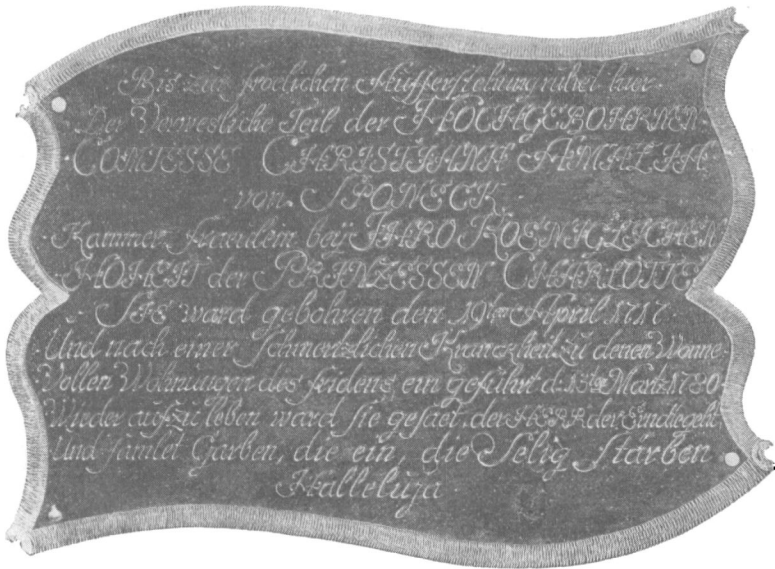 Bis zur froelichen Aufferstehung ruhet hier
Der Verwesliche Teil der HOCHGEBOHRNEN
COMTESSE CHRISTIANA AMALIA
von SPONECK
Kammer-fraeulein beÿ IHRO KOENIGLICHEN
HOHEIT der PRINZESSEN CHARLOTTE
SIE ward gebohren den 19ten April 1717
Und nach einer Schmertzlichen Kranckheit zu denen Wonne
Vollen Wohnungen des fridens ein geführt d. 13te Martz 1780
Wieder aufzu leben ward sie gesaet. der HERR der Erndte geht
Und samlet Garben, die ein, die Selig starben
Halleluja